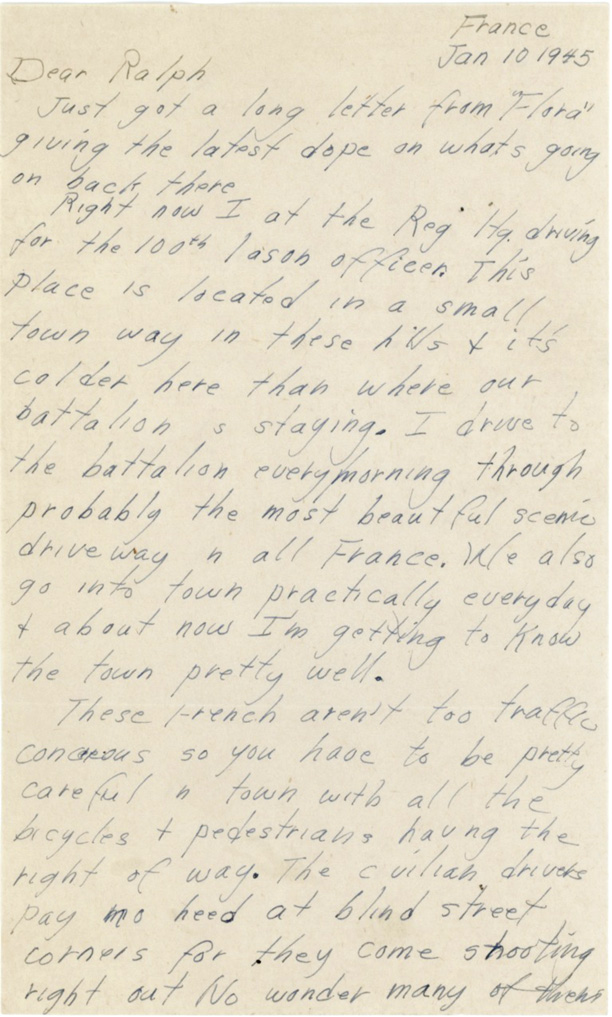 France
Jan 10 1945
Dear Ralph
Just got a long letter from "Flora"
giving the latest dope on whats going
on back there
Right now I at the Reg Hq. driving
for the 100th lason officer. This
place is located in a small
town way in these hills & it's
colder here than where our
battalion s staying. I drive to
the battalion everymorning through
probably the most beautful scenic
driveway n all France. We also
go into town practically everyday
& about now Im getting to know
the town pretty well.
These French aren't too traffic
so you have to be pretty
careful n town with all the
bicycles & pedestrians havng the
right of way. The civilian drivers
pay no heed at blind street
corners for they come shooting
right out No wonder many of them